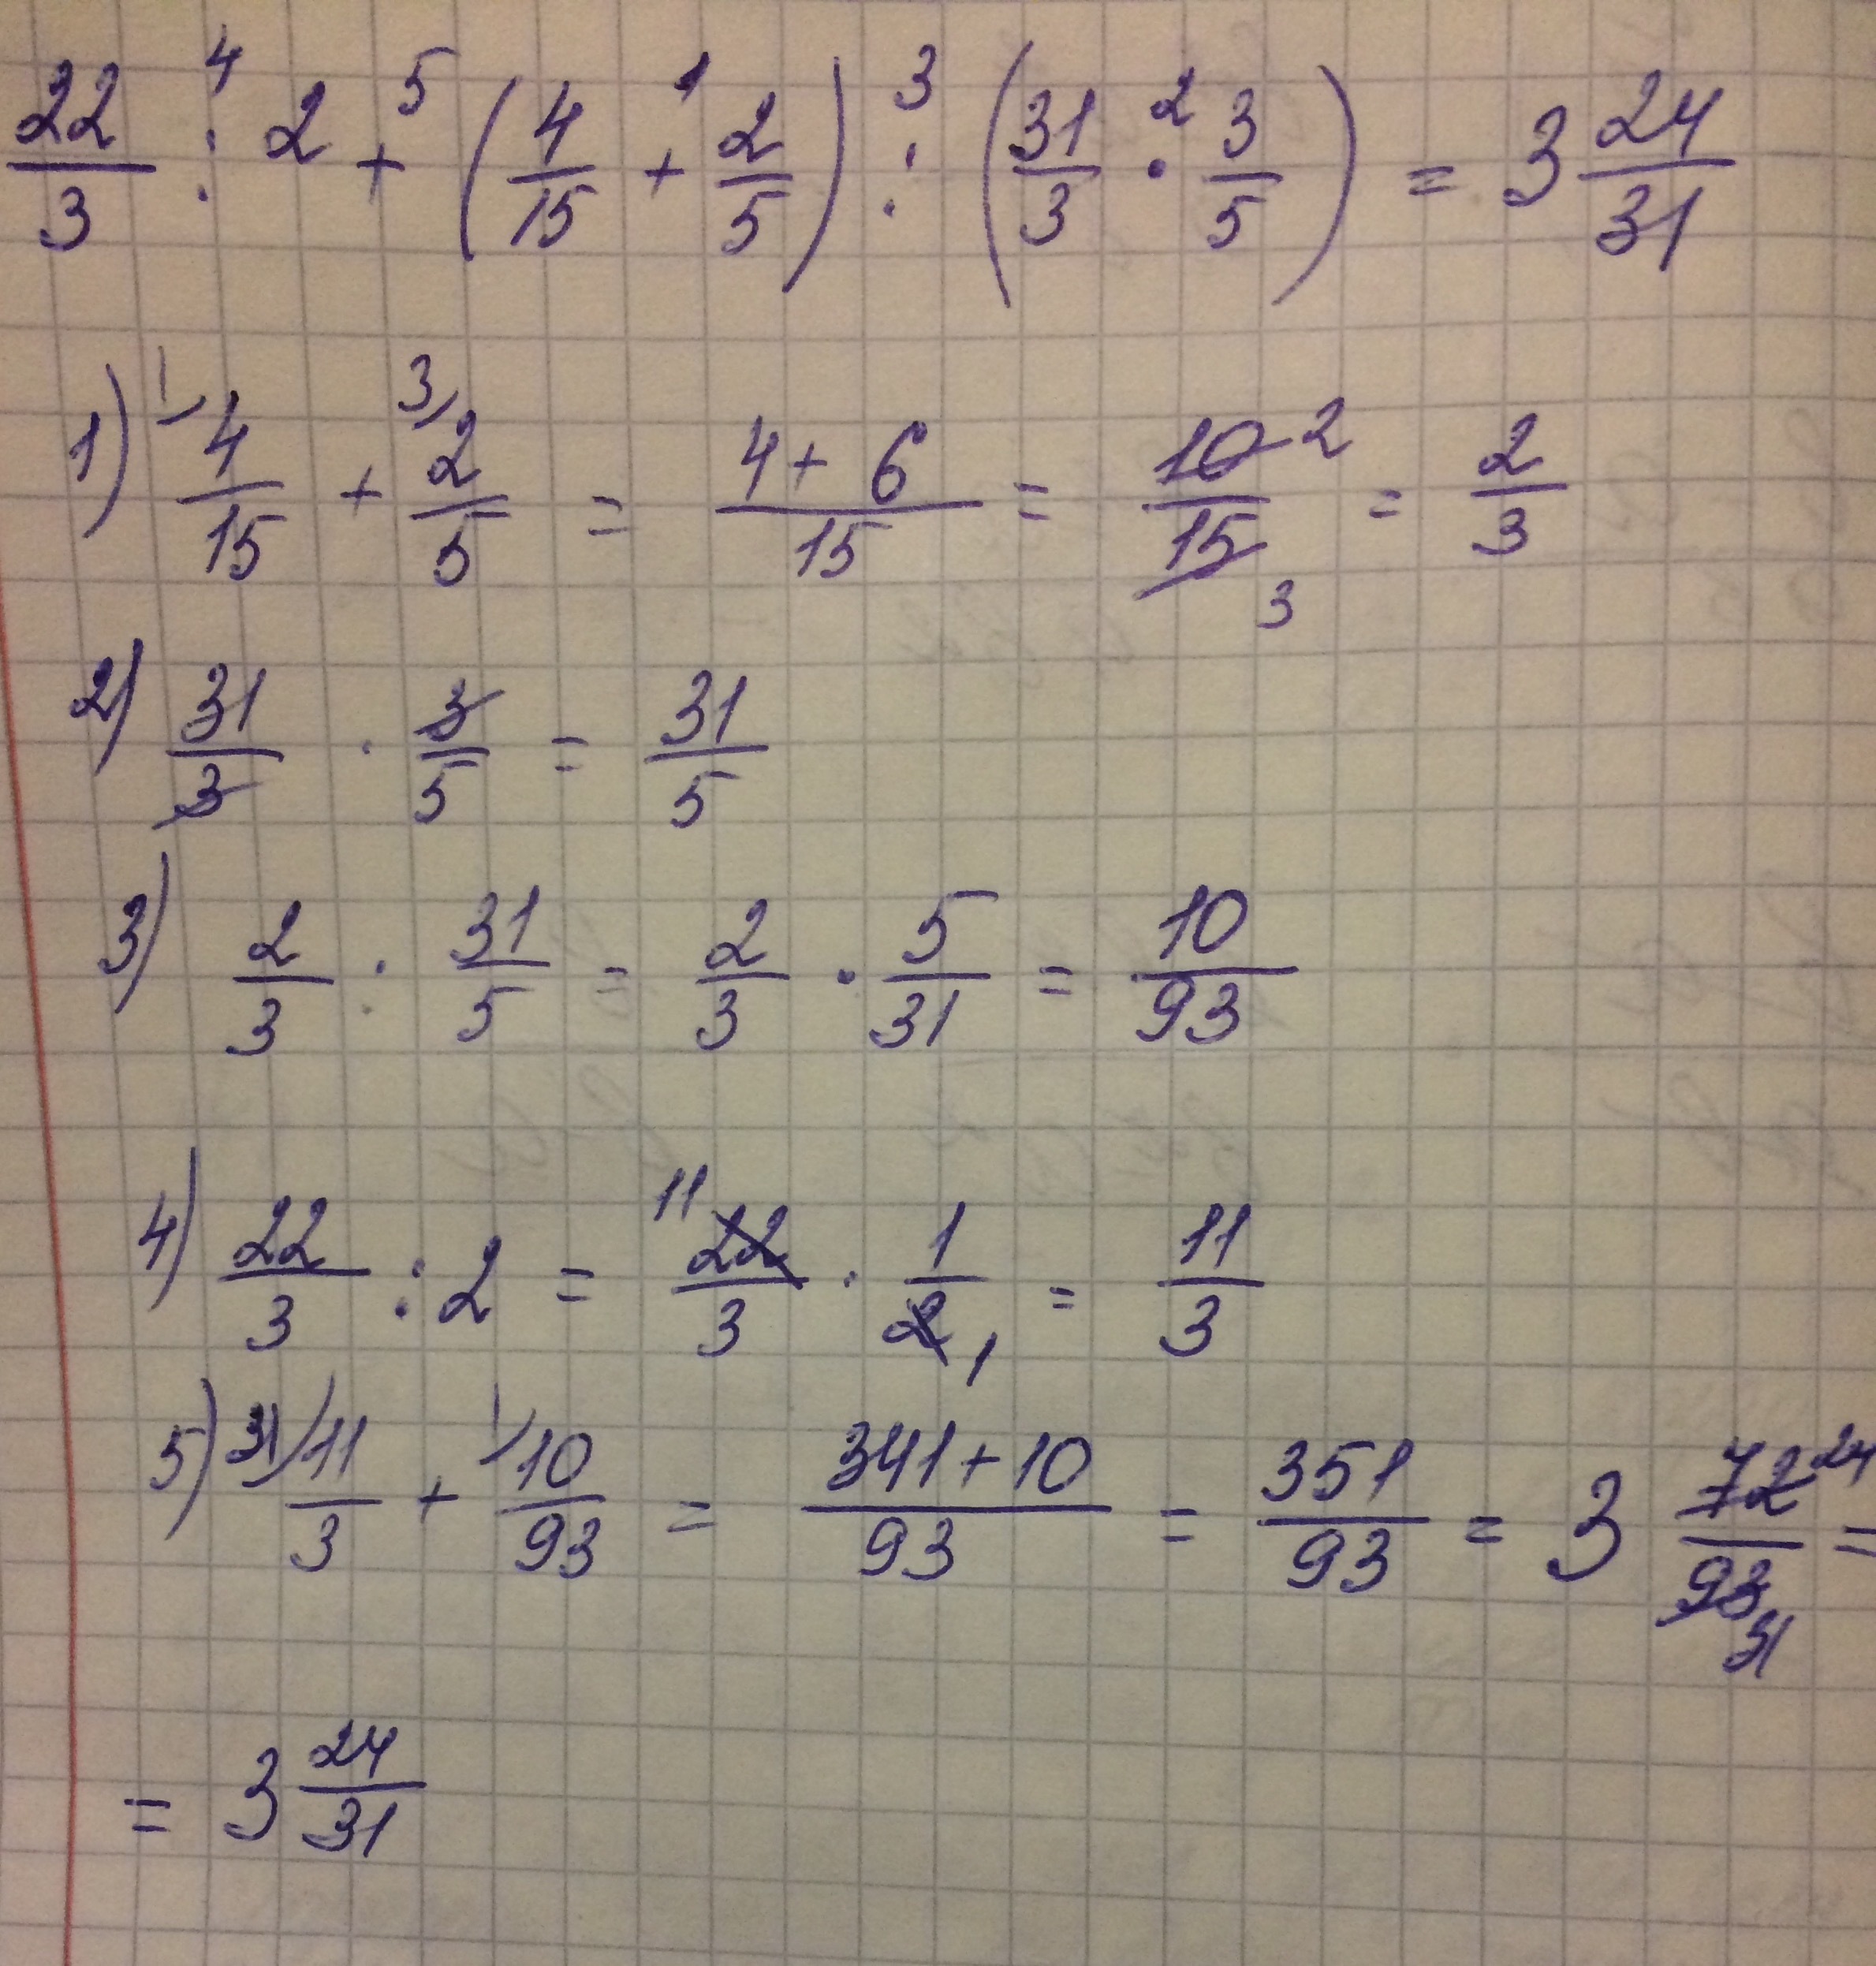 22/3 : 2 + (4/15 + 2/5) : (31/3 · 3/5) = 3 24/31
1) 4/15 + 2/5 = (4 + 6)/15 = 10/15 = 2/3
2) 31/3 · 3/5 = 31/5
3) 2/3 : 31/5 = 2/3 · 5/31 = 10/93
4) 22/3 : 2 = 22/3 · 1/2 = 11/3
5) 11/3 + 10/93 = (341 + 10)/93 = 351/93 = 3 72/93 =
= 3 24/31